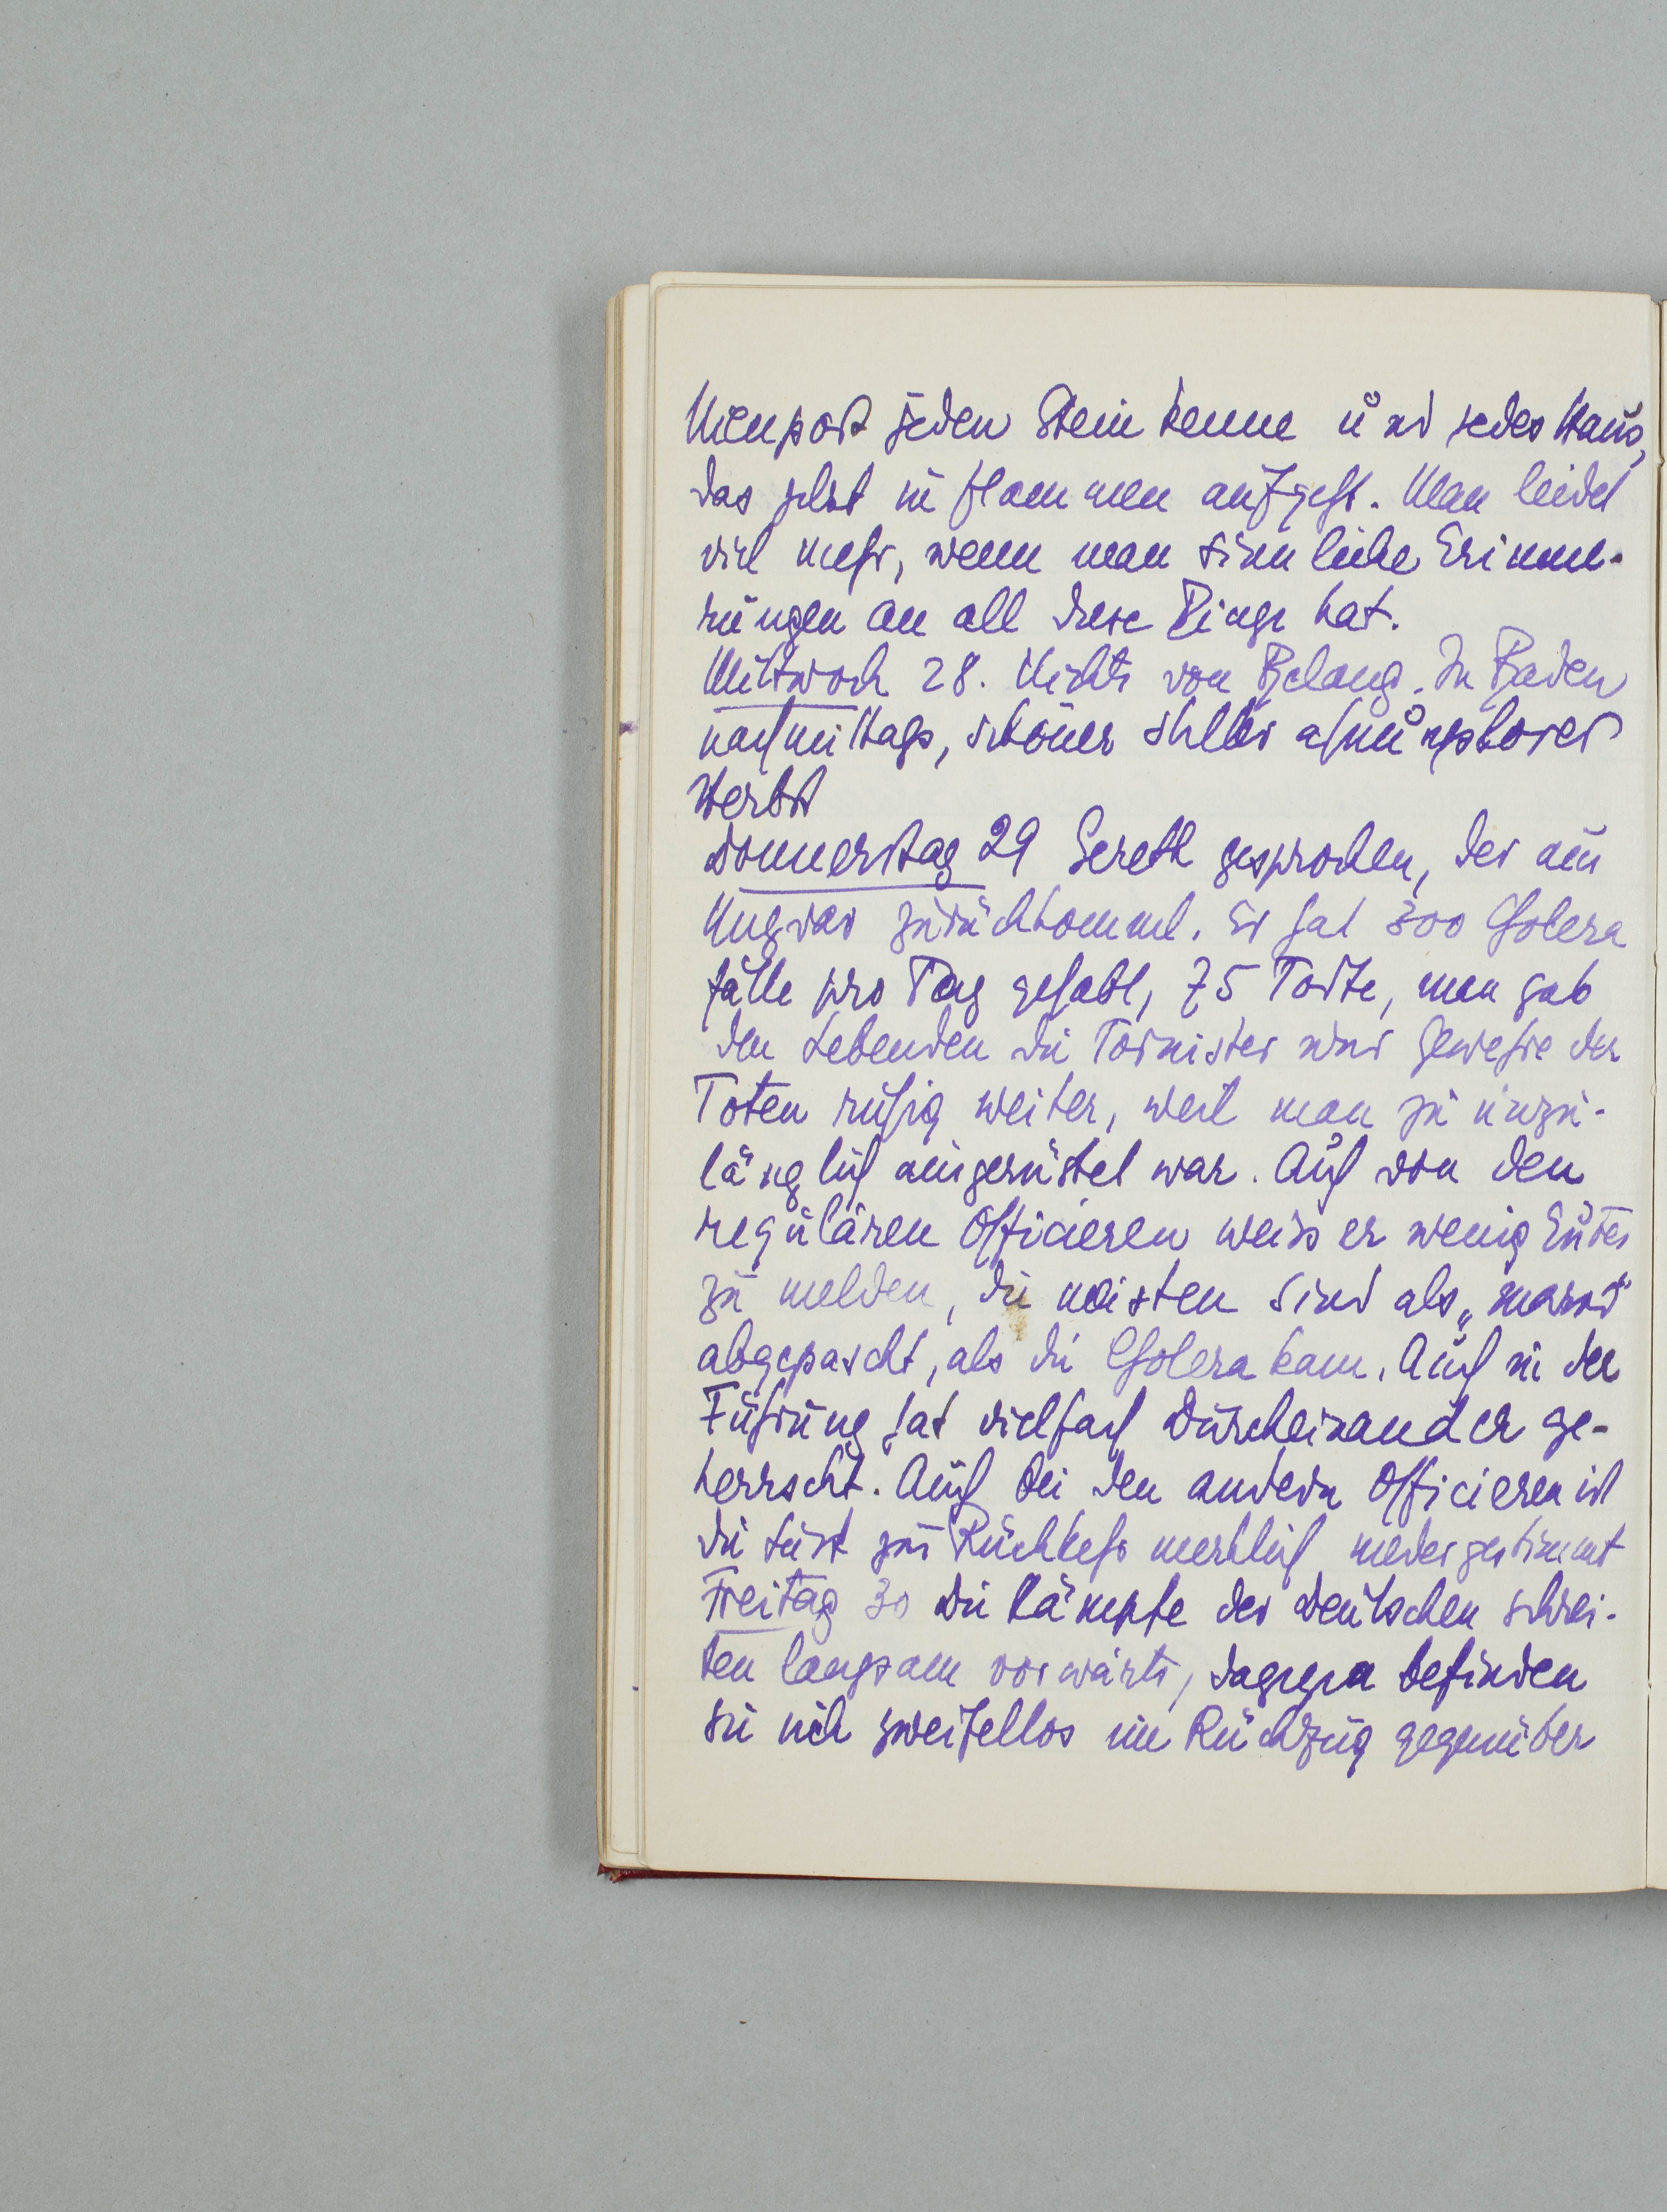 Nieuport jeden Stein kenne und jedes Haus,
das jetzt in Flammen aufgeht. Man leidet
viel mehr, wenn man sinnliche Erinne-
rungen an all diese Dinge hat.
Mittwoch 28. Nichts von Belang. In Baden
nachmittags, schöner stiller ahnungsloser
Herbst
Donnerstag 29 Sereth gesprochen, der aus
Ungvar zurückkommt. Er hat 300 Cholera
fälle pro Tag gehabt, 75 Todte, man gab
den Lebenden die Tornister und Gewehre der
Toten ruhig weiter, weil man zu unzu-
länglich ausgerüstet war. Auch von den
regulären Officieren weiss er wenig Gutes
zu melden, die meisten sind als „marod“
abgepascht, als die Cholera kam. Auch in der
Führung hat vielfach Durcheinander ge-
herrscht. Auch bei den andern Officieren ist
die Lust zur Rückkehr merklich niedergestimmt
Freitag 30 Die Kämpfe der Deutschen schrei-
ten langsam vorwärts, dagegen befinden
sie sich zweifellos im Rückzug gegenüber